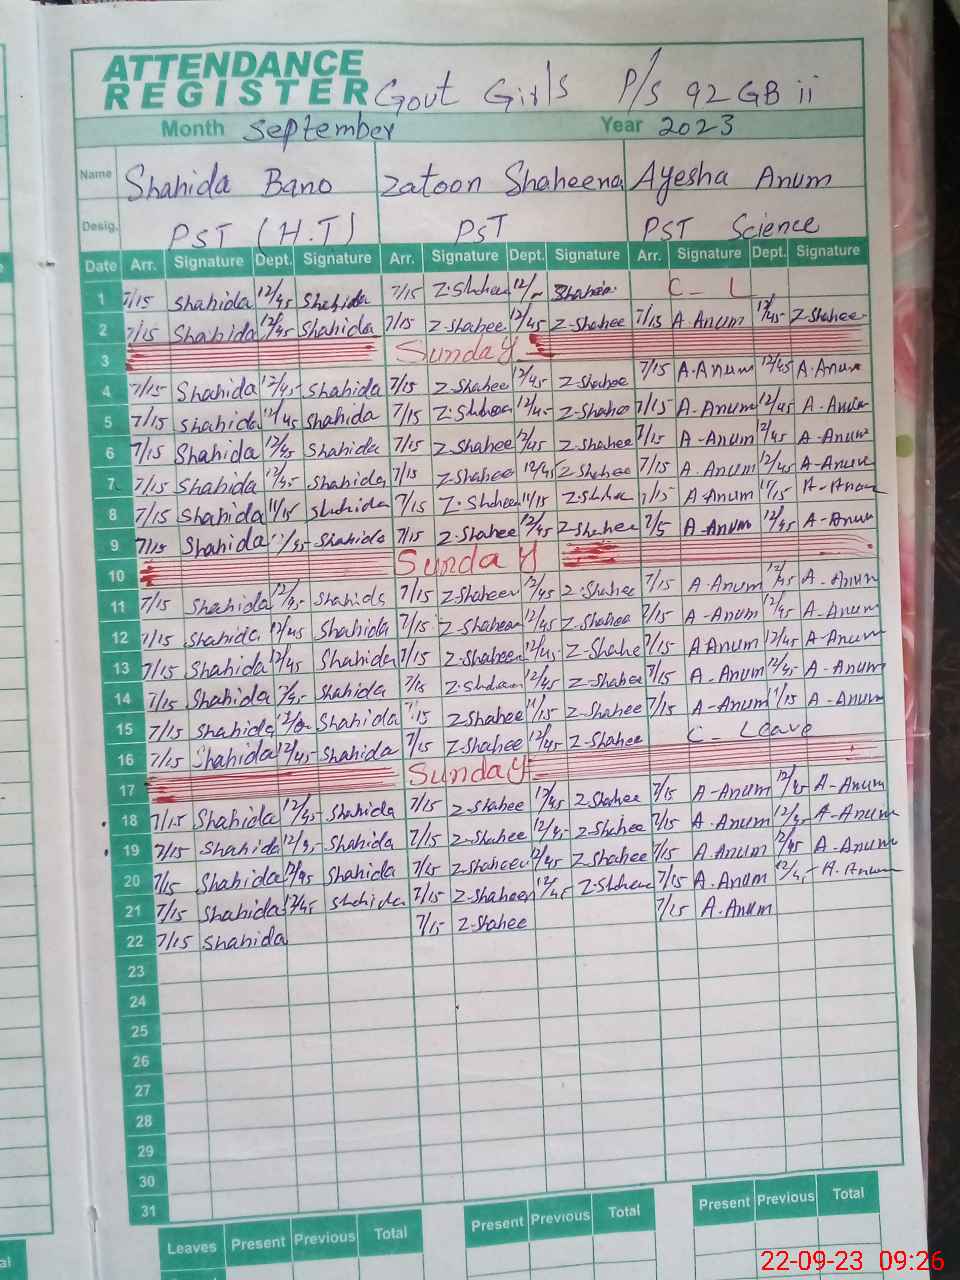 ATTENDANCE
REGISTER Govt Girls P/S 92 GB ii
Month September Year 2023
Name Shahida Bano Zatoon Shaheena Ayesha Anum
Desig. PST (H.T) PST PST Science
Date Arr. Signature Dept. Signature Arr. Signature Dept. Signature Arr. Signature Dept. Signature
1 7/15 Shahida 12/45 Shahida 7/15 12/ C - L
2 7/15 Shahida 12/45 Shahida 7/15 Z-Shahee 12/45 Z-Shahee 7/15 A Anum 12/45 Z-Shahee
3 Sunday
4 7/15 Shahida 12/45 Shahida 7/15 Z-Shahee 12/45 Z-Shahee 7/15 A.Anum 12/45 A.Anum
5 7/15 Shahida 12/45 Shahida 7/15 12/45 Z-Shahe 7/15 A-Anum 12/45 A-Anum
6 7/15 Shahida 12/45 Shahida 7/15 Z-Shahee 12/45 Z-Shahee 7/15 A-Anum 12/45 A-Anum
7 7/15 Shahida 12/45 Shahida 7/15 Z-Shahee 12/45 Z-Shahee 7/15 A.Anum 12/45 A-Anum
8 7/15 Shahida 11/15 Shahida 7/15 11/15 7/15 A-Anum 11/15 A-Anum
9 7/15 Shahida Shahida 7/15 Z-Shahee 12/45 Z-Shahee 7/5 A-Anum 12/45 A-Anum
10 Sunday
11 7/15 Shahida 12/45 Shahida 7/15 Z-Shaheen 12/45 Z-Shahee 7/15 A.Anum 12/45 A-Anum
12 7/15 Shahida 12/45 Shahida 7/15 Z-Shaheen 12/45 Z-Shahee 7/15 A-Anum 12/45 A-Anum
13 7/15 Shahida 12/45 Shahida 7/15 Z-Shaheen 12/45 Z-Shahe 7/15 A Anum 12/45 A-Anum
14 7/15 Shahida 12/45 Shahida 7/15 12/45 Z-Shahee 7/15 A-Anum 12/45 A-Anum
15 7/15 Shahida Shahida 7/15 Z-Shahee 11/15 Z-Shahee 7/15 A-Anum 11/15 A-Anum
16 7/15 Shahida 12/45 Shahida 7/15 Z-Shahee 12/45 Z-Shahee C - Leave
17 Sunday
18 7/15 Shahida 12/45 Shahida 7/15 Z-Shahee 12/45 Z-Shahee 7/15 A-Anum 12/45 A-Anum
19 7/15 Shahida 12/45 Shahida 7/15 Z-Shahee 12/45 Z-Shahee 7/15 A.Anum 12/45 A-Anum
20 7/15 Shahida 12/45 Shahida 7/15 Z-Shaheen 12/45 Z-Shahee 7/15 A.Anum 12/45 A.Anum
21 7/15 Shahida 12/45 Shahida 7/15 Z-Shaheen 12/45 7/15 A.Anum 12/45 A.Anum
22 7/15 Shahida 7/15 Z-Shahee 7/15 A.Anum
23
24
25
26
27
28
29
30
31
Leaves Present Previous Total Present Previous Total Present Previous Total
22-09-23 09:26